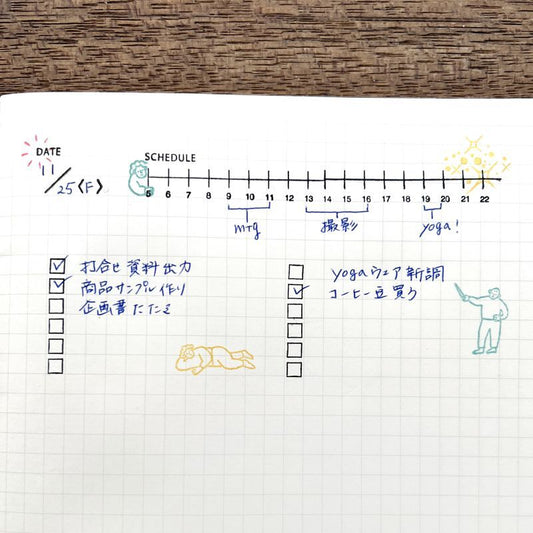 DATE
11/25〈F〉
SCHEDULE
5 6 7 8 9 10 11 12 13 14 15 16 17 18 19 20 21 22
mtg 撮影 yoga!
打合せ資料出力
商品サンプル作り
企画書たたき
yogaウェア新調
コーヒー豆買う